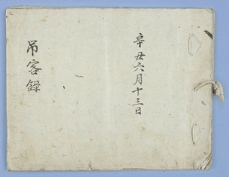 辛丑六月十三日
吊客錄